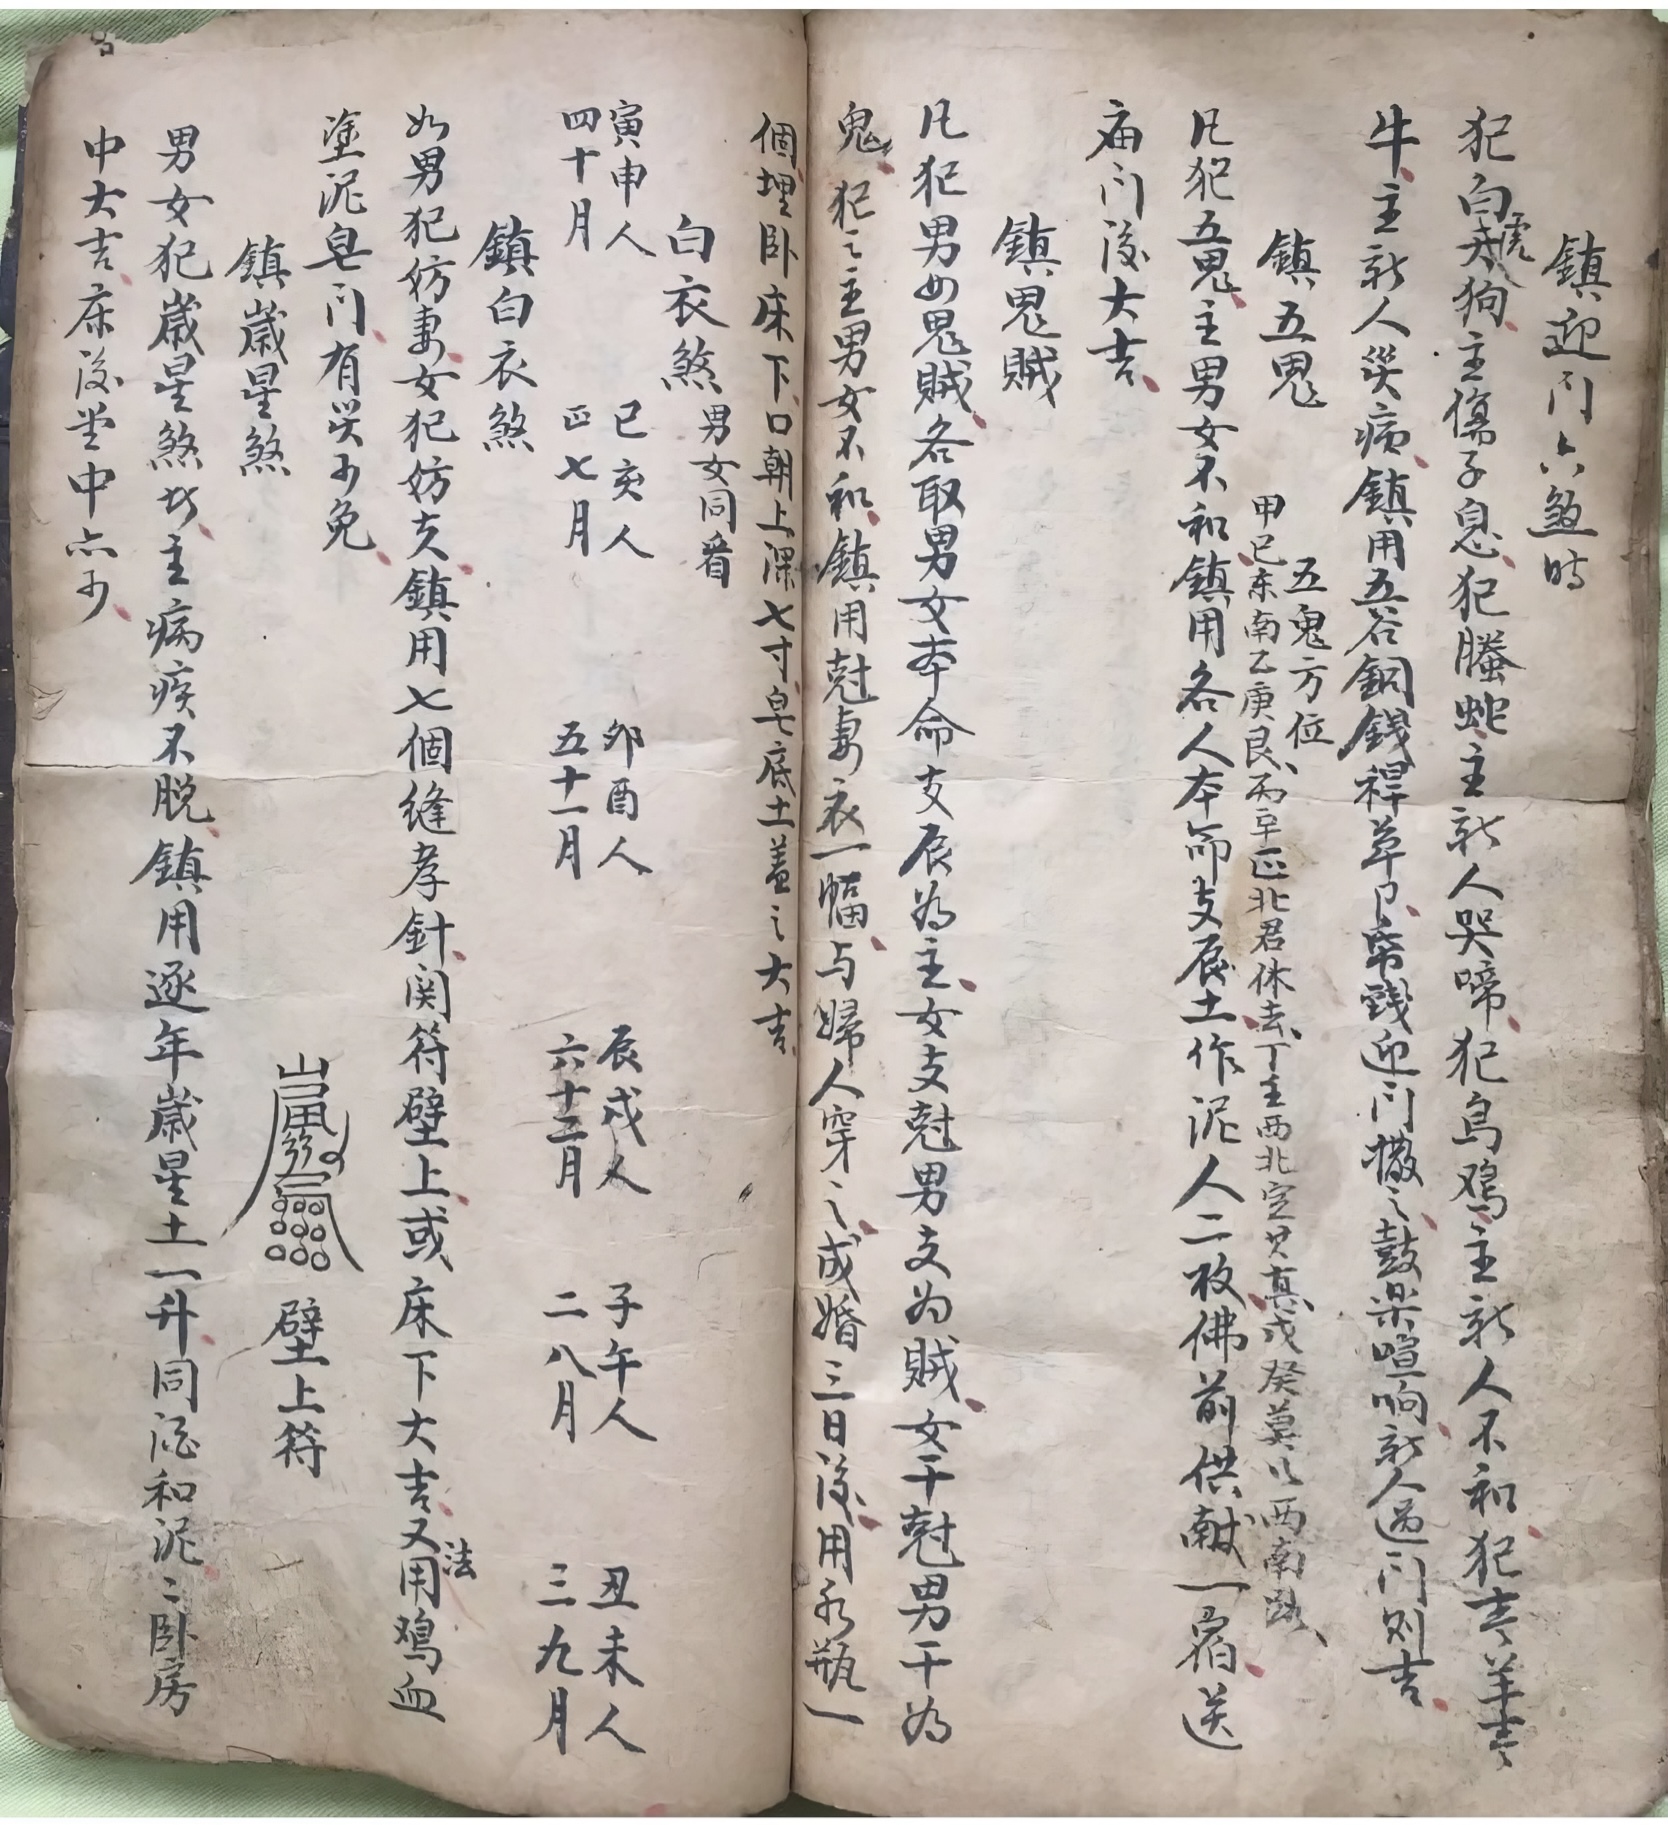 鎮迎门六煞時
犯白虎天狗主傷子息犯螣蛇主新人哭啼犯烏鸡主新人不和犯青羊青
牛主新人災病鎮用五谷銅錢稈草帛錢迎门撒之鼓楽喧响新人過门则吉
鎮五鬼
五鬼方位
甲巳东南乙庚艮丙辛正北君休去丁壬西北戊癸莫以西南
凡犯五鬼主男女不和鎮用各人本命支辰土作泥人二枚佛前供献一宿送
庙门後大吉
鎮鬼贼
凡犯男女鬼贼各取男女本命支辰為主女支尅男支为贼女干尅男干為
鬼犯之主男女不和鎮用尅妻衣一幅与婦人穿之成婚三日後用水瓶一
個埋卧床下口朝上深七寸皂底土盖之大吉
白衣煞 男女同看
寅申人 巳亥人 卯酉人 辰戌人 子午人 丑未人
四十月 正七月 五十一月 六十二月 二八月 三九月
鎮白衣煞
如男犯妨妻女犯妨夫鎮用七個缝孝針関符壁上或床下大吉又法用鸡血
塗泥皂门有災可免
鎮歲星煞
壁上符
男女犯歲星煞者主病疾不脱鎮用逐年歲星土一升同酒和泥泥卧房
中大吉床後堂中亦可